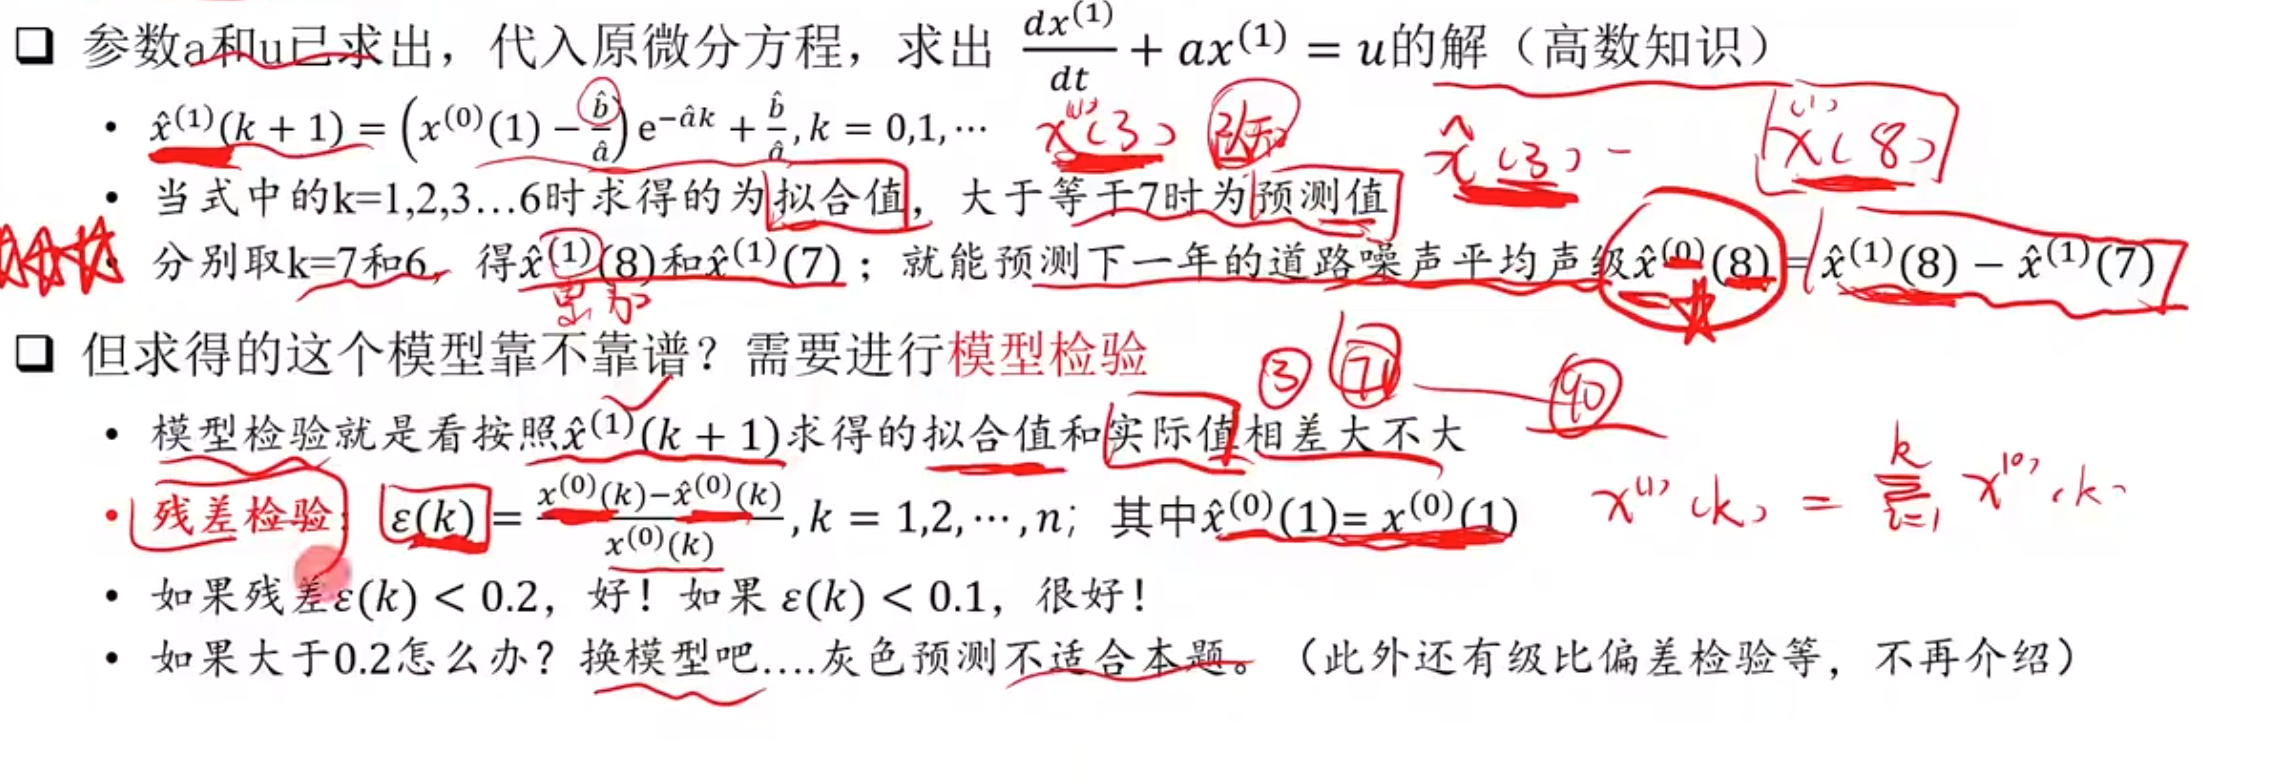 ❑ 参数a和u已求出，代入原微分方程，求出 dx⁽¹⁾/dt + ax⁽¹⁾ = u的解（高数知识）
• x̂⁽¹⁾(k + 1) = (x⁽⁰⁾(1) − b̂/â) e^(−âk) + b̂/â, k = 0,1,⋯ x⁽¹⁾(3) 已知 x̂(3) - x⁽¹⁾(8)
• 当式中的k=1,2,3…6时求得的为拟合值，大于等于7时为预测值
• 分别取k=7和6，得x̂⁽¹⁾(8)和x̂⁽¹⁾(7)；就能预测下一年的道路噪声平均声级x̂⁽⁰⁾(8) = x̂⁽¹⁾(8) − x̂⁽¹⁾(7)
累加
❑ 但求得的这个模型靠不靠谱？需要进行模型检验
3 71 90
• 模型检验就是看按照x̂⁽¹⁾(k + 1)求得的拟合值和实际值相差大不大
• 残差检验: ε(k) = (x⁽⁰⁾(k)−x̂⁽⁰⁾(k))/x⁽⁰⁾(k), k = 1,2,⋯,n；其中x̂⁽⁰⁾(1)= x⁽⁰⁾(1) x⁽¹⁾(k) = Σ_(i=1)^k x⁽⁰⁾(k)
• 如果残差ε(k) < 0.2，好！如果 ε(k) < 0.1，很好！
• 如果大于0.2怎么办？换模型吧....灰色预测不适合本题。（此外还有级比偏差检验等，不再介绍）